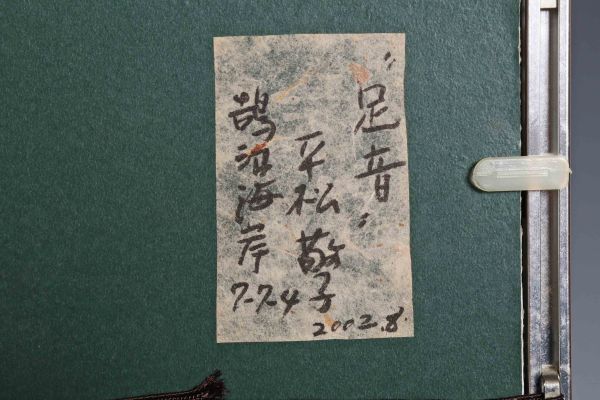 〝足音〟
平松敬子
鵠沼海岸
7-7-4
2002.8.